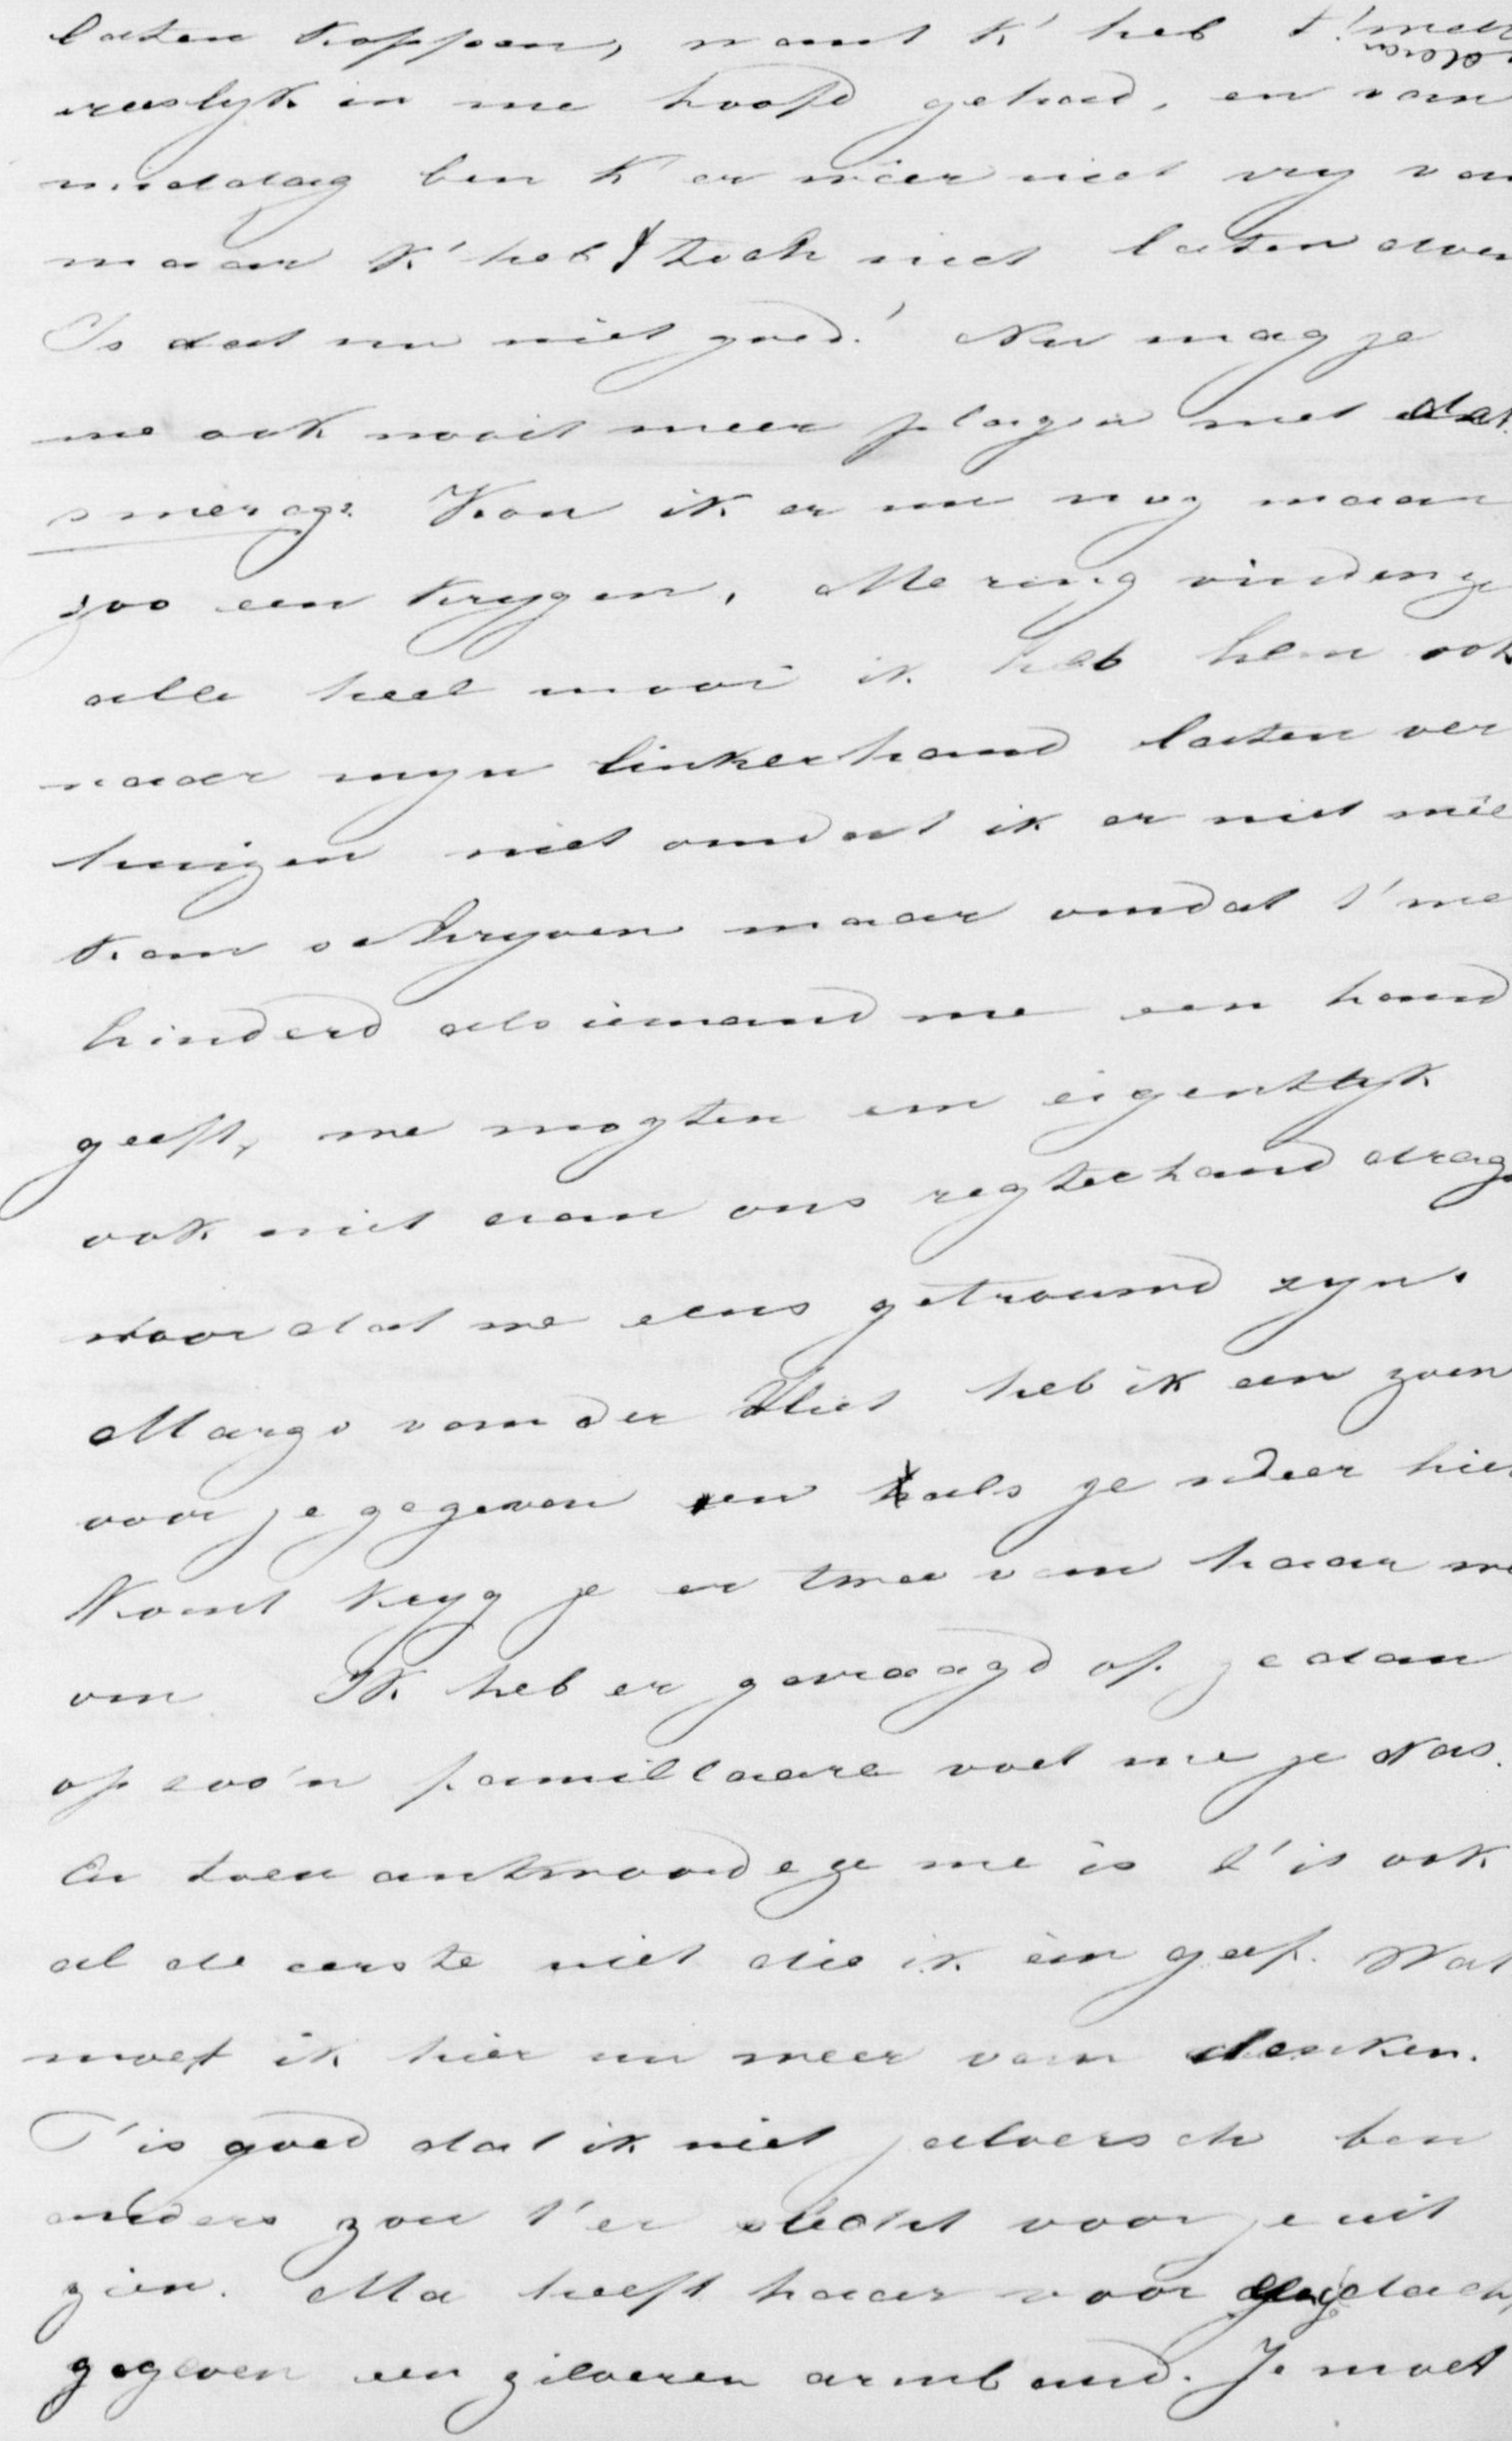 laten koppen, want k' heb t! 
vreeslyk in me hoofd gehad, en van
middag ben k er weer niet vry van
maar k' heb t toch niet laten doen
Is dat nu niet goed! Nu mag je
me ook nooit meer plagen met dat
smerags. Kon ik er nu nog maar
zoo een krygen. Me ring vinden ze
alle heel mooi ik heb hem ook
naar myn linkerhand laten ver
huizen niet omdat ik er niet mêe
kan schryven maar omdat t' me
hinderd als iemand me een hand
geeft, we mogten em eigentlyk
ook niet aan ons regterhand drag
voordat we eens getrouwd zyn.
Margo van der Vliet heb ik een zoen
voor je gegeven en als je weer hier
komt kryg je er twee van haar we
om Ik heb er gevraagd of je dan
op zoo'n familiaare voet me je was.
En toen antwoordde ze me is t' is ook
al de eerste niet die ik em geef. Wat
moet ik hier nu meer van denken.
T' is goed dat ik niet jaloersch ben
anders zou t' er slecht voor je uit
zien. Ma heeft haar voor gedach
gegeven een zilveren armband. Je moet